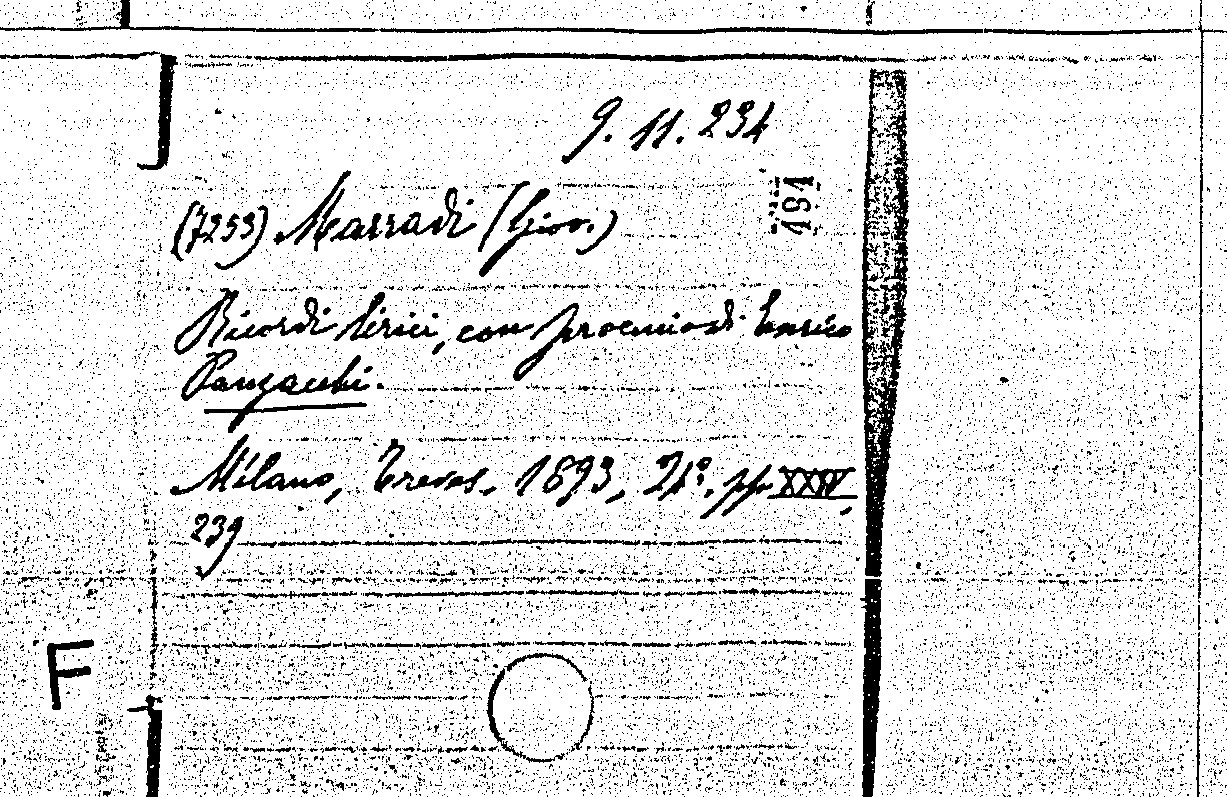 9. 11. 234
194
(7253) Marradi (Giov.)
Ricordi lirici, con proemio di Enrico
Panzacchi.
Milano, Treves, 1893, 21º. pp. XXIV,
239
F